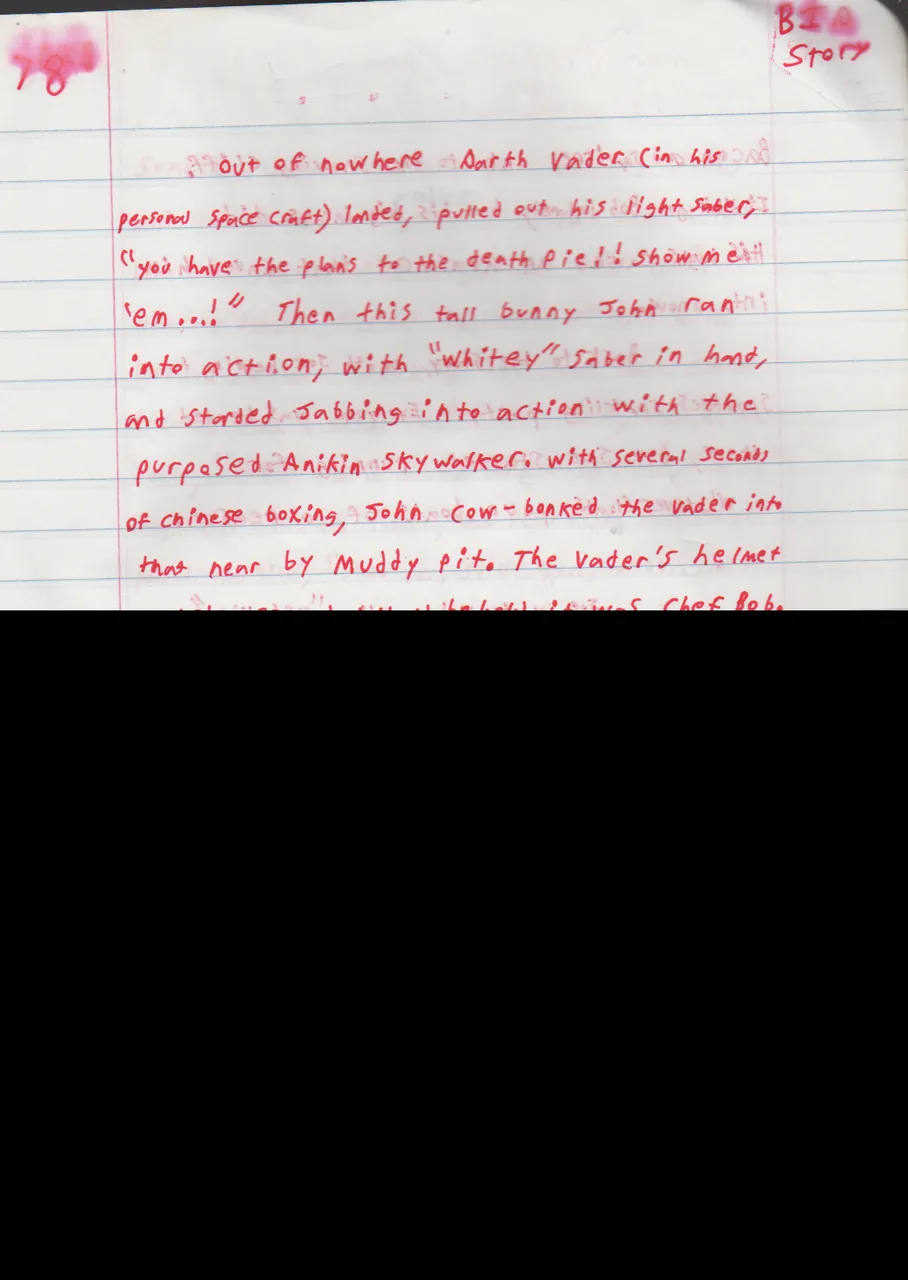 78
BIA
Story
Out of nowhere Darth Vader (in his
personal space craft) landed, pulled out his light saber,
"you have the plans to the death pie!! show me
'em...!" Then this tall bunny John ran
into action, with "whitey" saber in hand,
and starded Jabbing into action with the
purposed Anikin Skywalker. with several seconds
of chinese boxing, John cow-bonked the vader into
that near by Muddy pit. The vader's helmet
it was Chef Bob.